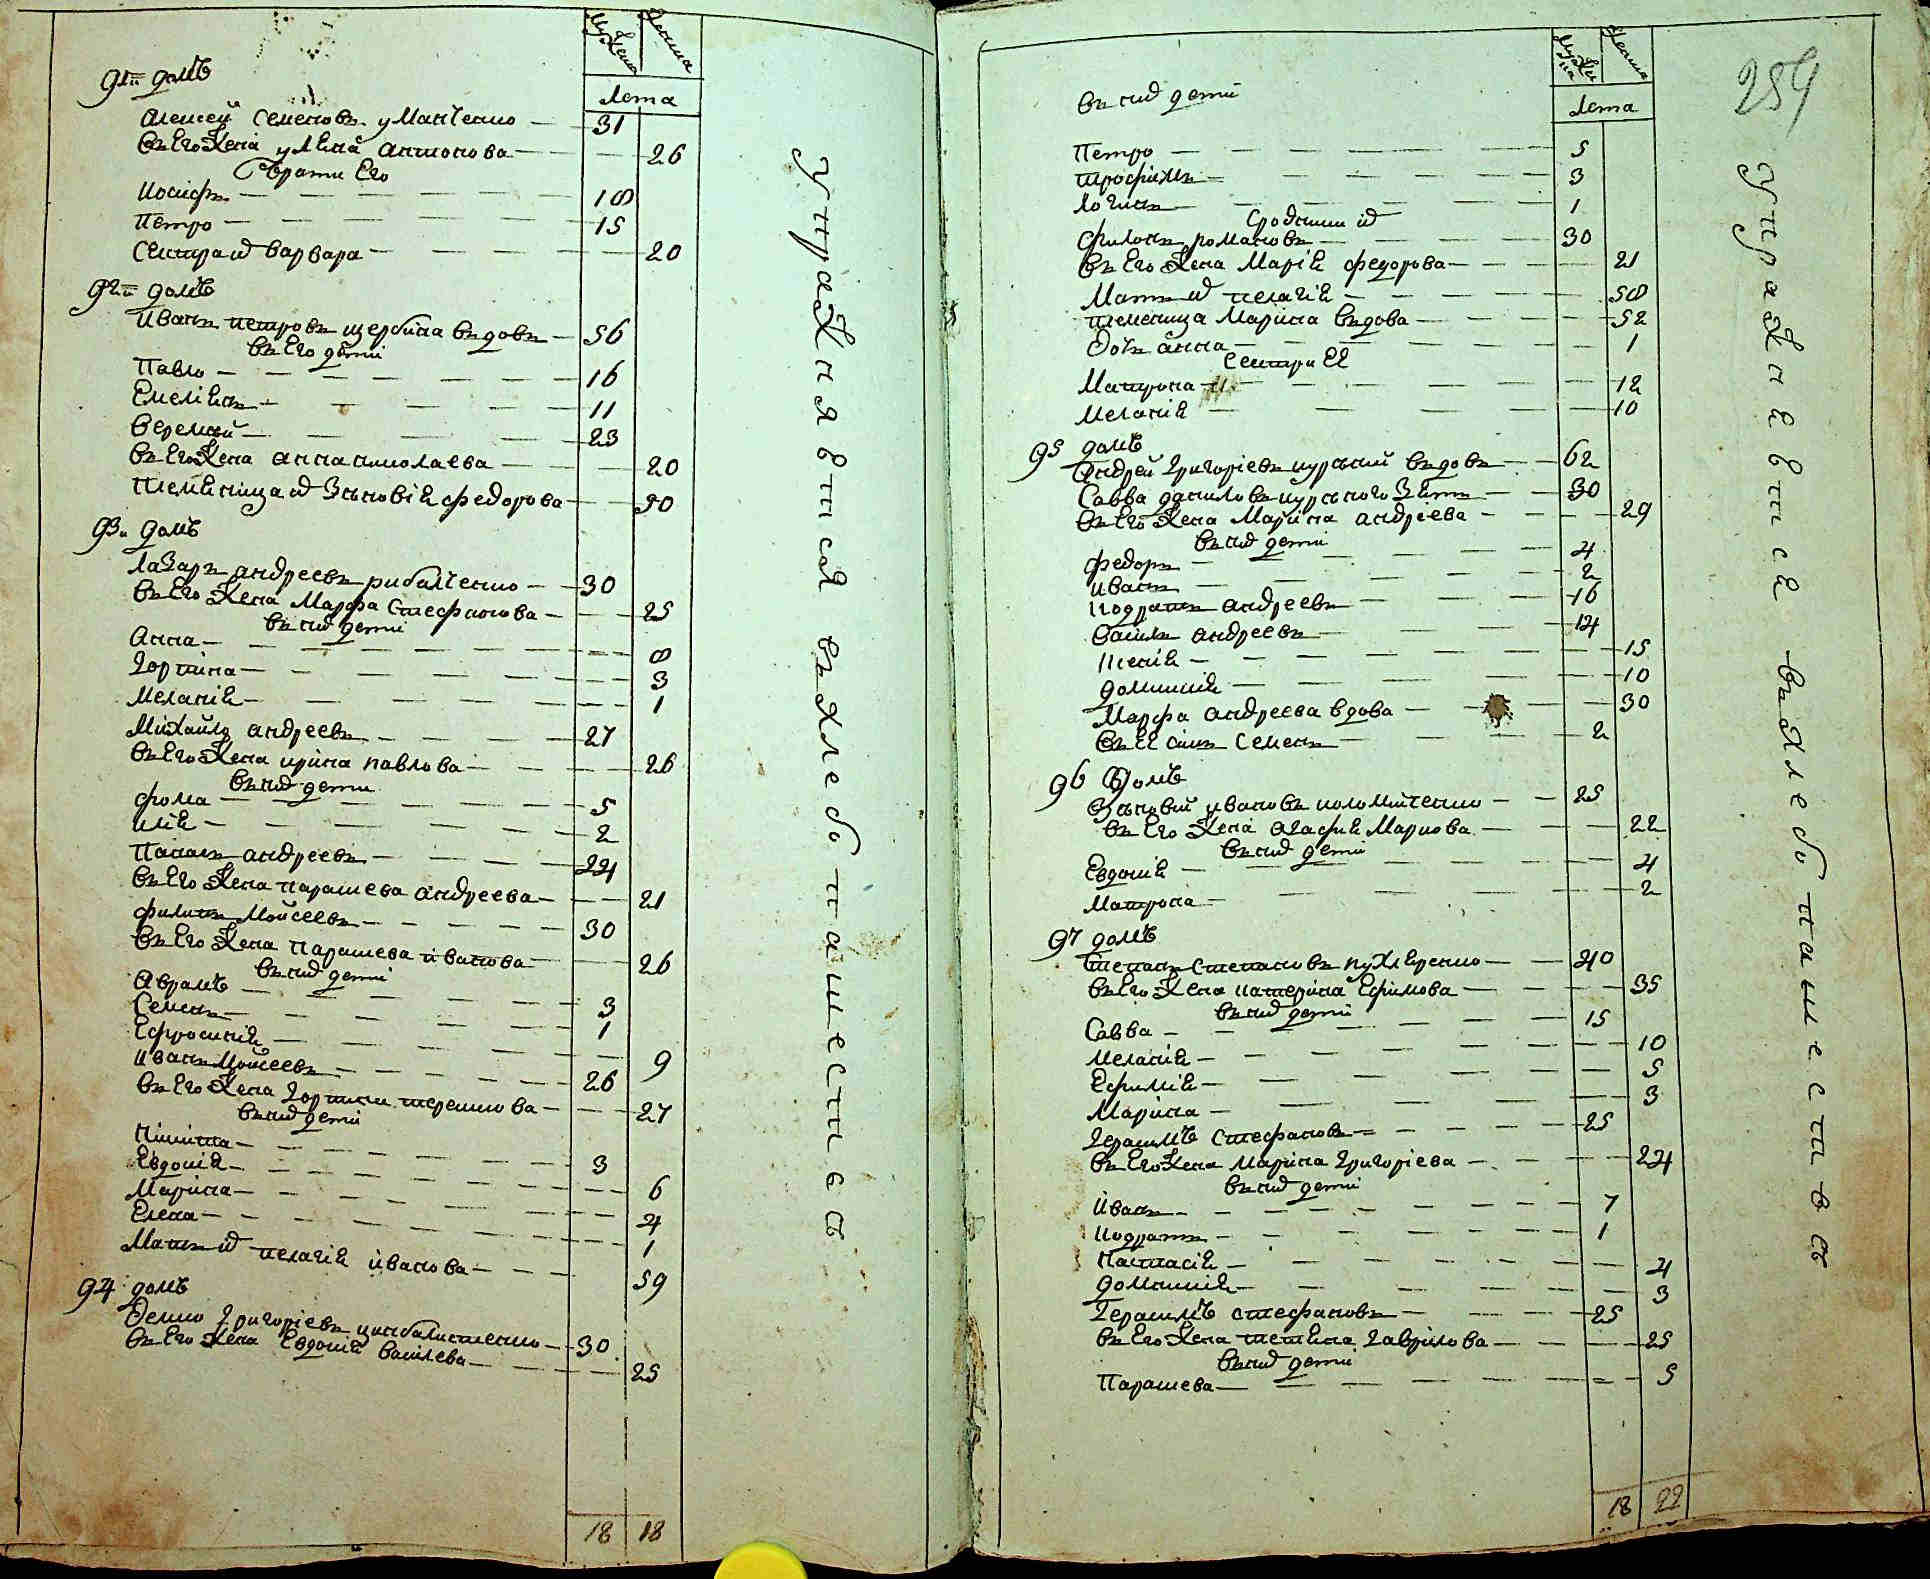 Мужеска
Женска
Лета
91й домъ
Алексей Семеновъ уманченко 31
въ Его Жена улияна антонова 26
Брати Его
Иосифъ 18
Петро 15
Сестра их варвара 20
92й домъ
Иванъ петровъ щербина въдовъ 56
въ Его дети
Павло 16
Емелиян 11
Веремей 23
въ Его Жена анна николаева 20
племеница их Зеновия федорова 50
93й домъ
Лазаръ андреевъ рибалченко 30
въ Его Жена Марфа Стефанова 25
въ них дети
Анна 8
Горпина 3
Мелания 1
Михайло андреевъ 27
въ Его Жена ирина павлова 26
въ них дети
фома 5
илия 2
Панасъ андреевъ 24
въ Его Жена парашева андреева 21
филипъ Мойсеевъ 30
въ Его Жена парашева иванова 26
въ них дети
Аврамъ 3
Семенъ 1
Ефросиния 9
Иванъ Мойсеевъ 26
въ Его Жена Горпина терешкова 27
въ них дети
Никита 3
Евдокия 6
Марина 4
Елена 1
Мати их пелагия иванова 59
94 домъ
Демко Григориевъ цимбалистенко 30
въ Его Жена Евдокия василева 25
18 18
упраЖняЕтся въ хлебопашестве
259
Мужеска
Женска
Лета
въ них дети
Петро 5
трофимъ 3
Логинъ 1
Сродники их
филонъ романовъ 30
въ Его Жена Мария федорова 21
Мати их пелагия 58
племеница Марина въдова 52
Дочъ анна 1
Сестри Ее
Матрона 12
Мелания 10
95 домъ
Андрей Григориевъ курский въдовъ 62
Савва данилов курского Зять 30
въ Его Жена Марина андреева 29
въ них дети
федоръ 4
иванъ 2
Кодратъ андреевъ 16
Василъ андреевъ 14
Ксения 15
домникия 10
Марфа андреева вдова 30
въ Ее син Семенъ 2
96 Домъ
Зеновий ивановъ коломийченко 25
въ Его Жена агафия Маркова 22
въ них дети
Евдокия 4
Матрона 2
97 домъ
Степанъ Степановъ пухлеренко 40
въ Его Жена катерина Ефимова 35
въ них дети
Савва 15
Мелания 10
Ефимия 5
Марина 3
Герасимъ стефановъ 25
въ Его Жена Марина Григориева 24
въ них дети
Иванъ 7
Кодратъ 1
Настасия 4
домникия 3
Герасимъ стефановъ 25
въ Его Жена тетяна гаврилова 25
въ них дети
Парашева 5
18 22
упраЖняЕтся въ хлебопашествЕ